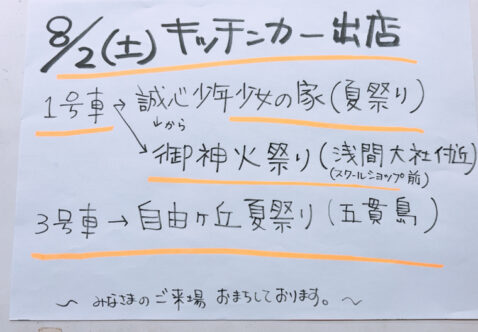 8/2(土) キッチンカー出店
1号車→誠心少年少女の家(夏祭り)
↓から
↘御神火祭り(浅間大社付近)
(スクールショップ前)
3号車→自由ヶ丘夏祭り(五貫島)
～みなさまのご来場 おまちしております。～